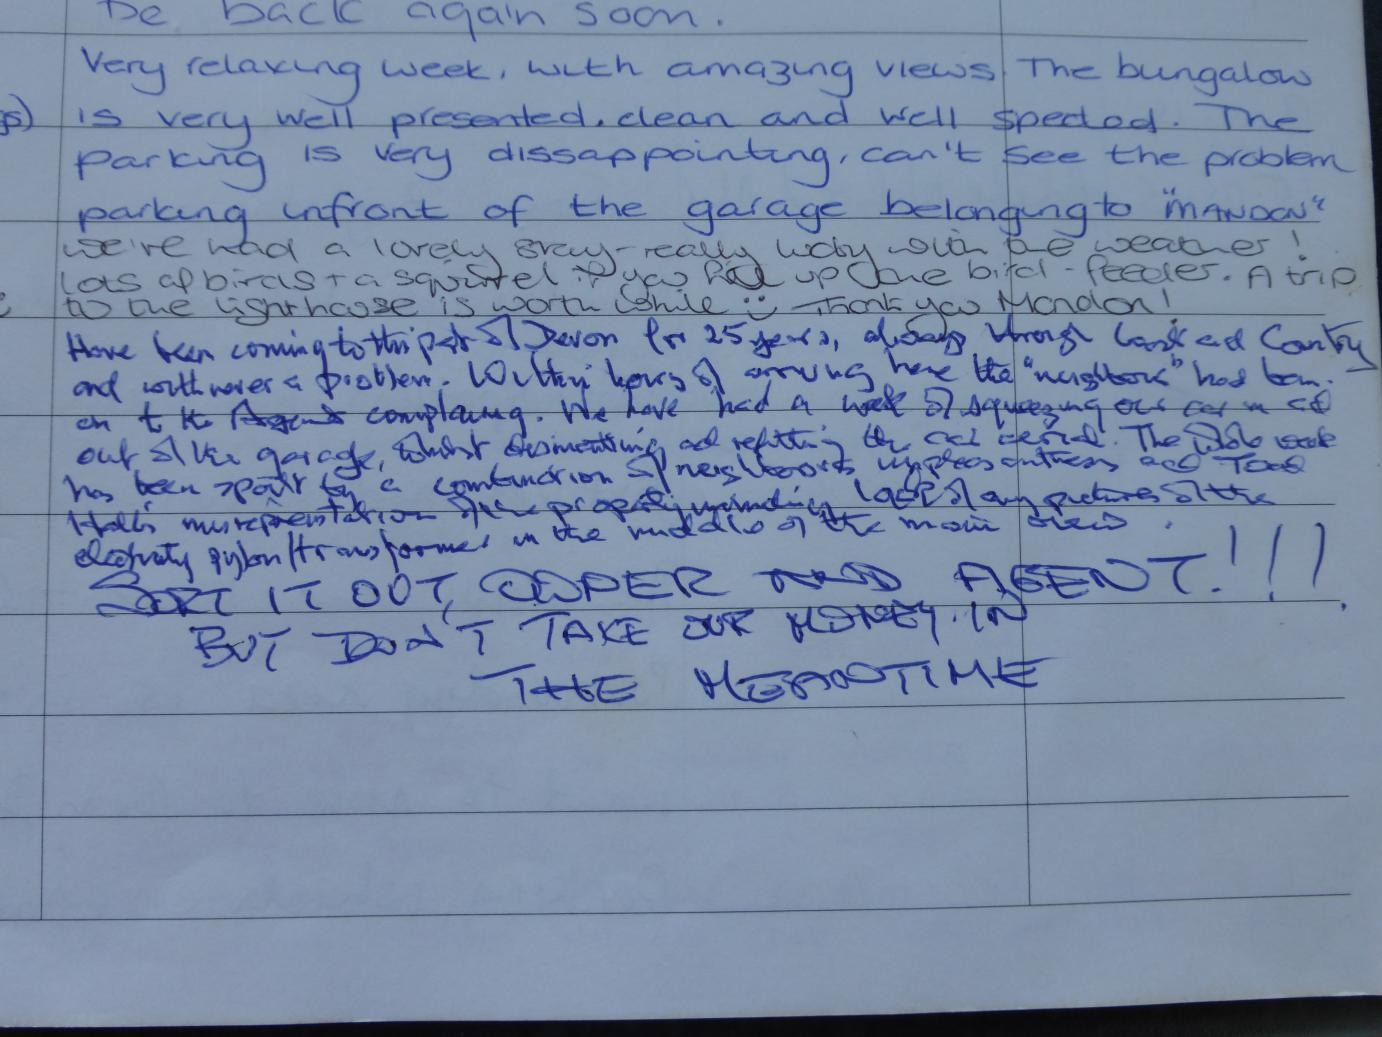 be back again soon.
Very relaxing week, with amazing views. The bungalow
gs) is very well presented, clean and well specked. The
parking is very dissappointing, can't see the problem
parking infront of the garage belonging to "MANDON"
We've had a lovely stay - really lucky with the weather!
Lots of birds + a squirrel if you fill up the bird-feeder. A trip
to the lighthouse is worth while :) Thank you Mandon!
Have been coming to this part of Devon for 25 years, always through Coast and Country
and with never a problem. Within hours of arriving here the "neighbours" had been
on to the Agents complaining. We have had a week of squeezing our car in and
out of the garage, whilst dismantling and refitting the car aerial. The whole week
has been spoilt by a combination of neighbours unpleasantness and Toad
Hall's misrepresentation of the property including lack of any pictures of the
electricity pylon/transformer in the middle of the main view.
SORT IT OUT, OWNER AND AGENT!!!
BUT DON'T TAKE OUR MONEY IN
THE MEANTIME